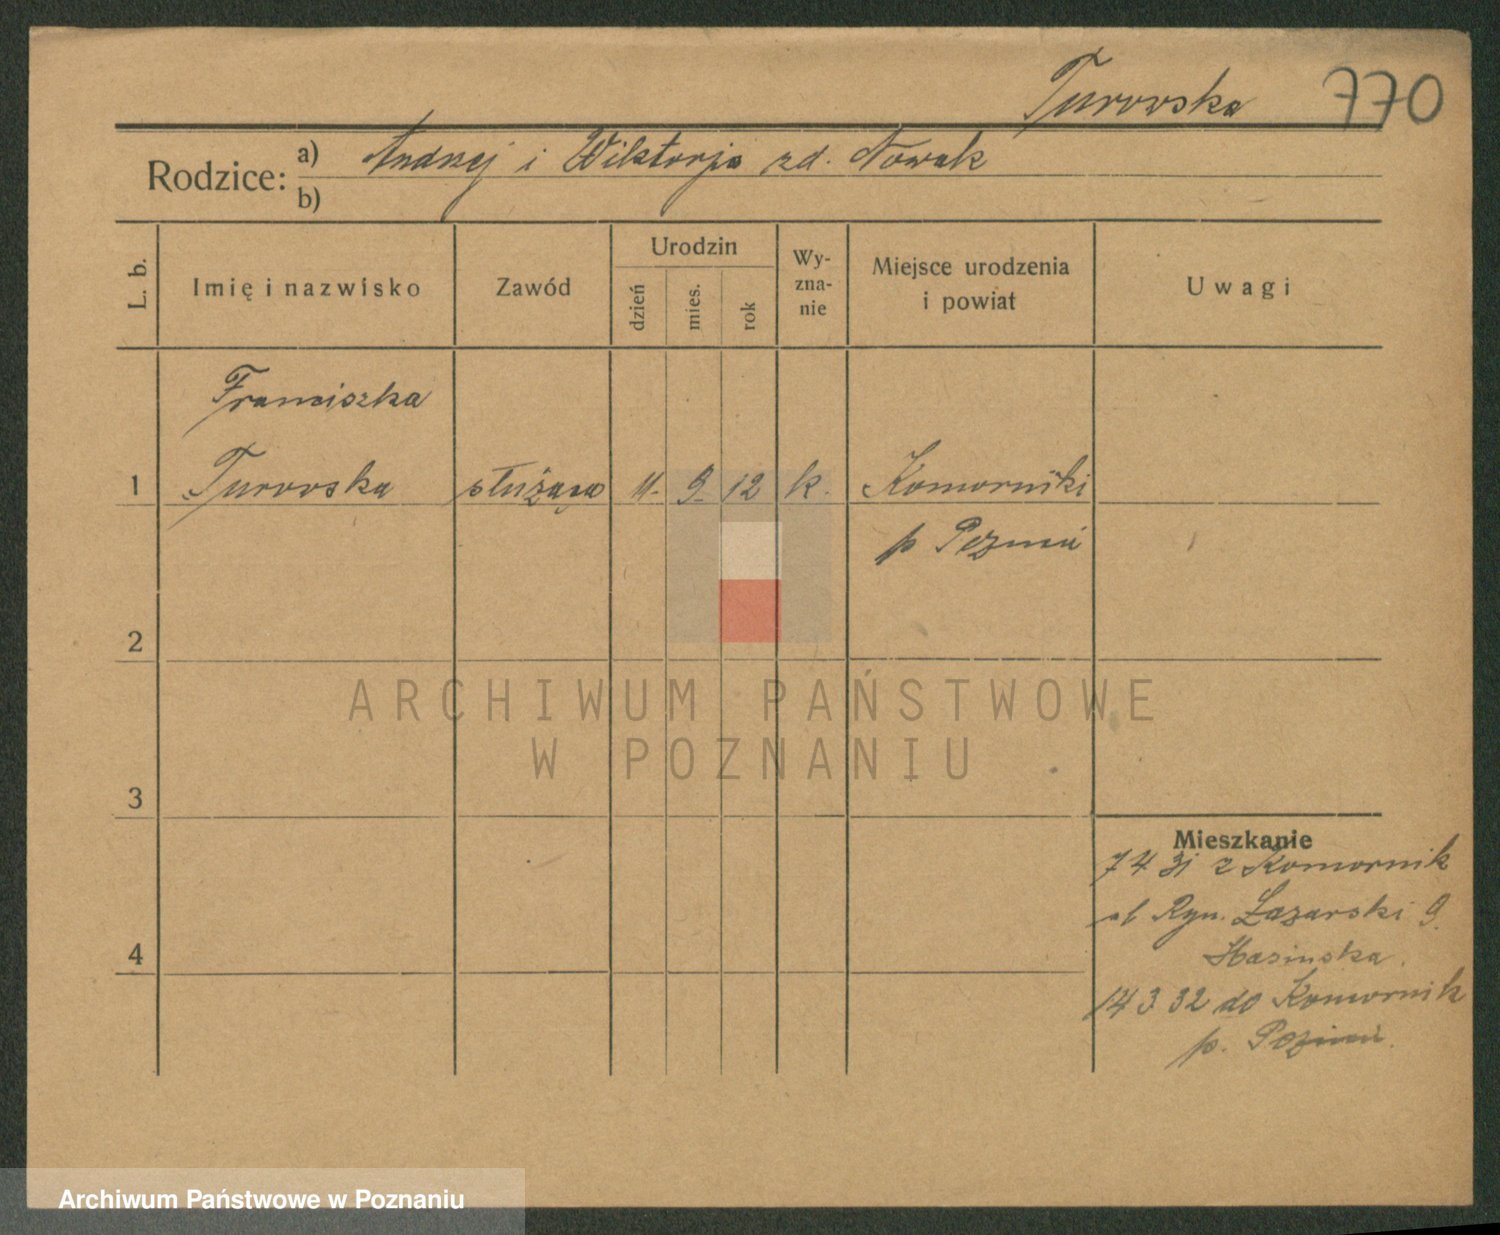 Turowska 770
Rodzice: a) Andrzej i Wiktorja zd. Nowak
b)
L. b.
Imię i nazwisko
Zawód
Urodzin
dzień
mies.
rok
Wy-
zna-
nie
Miejsce urodzenia
i powiat
Uwagi
Franciszka
1 Turowska służąca 11. 9. 12 k. Komorniki
p Poznań
2
3
4
Mieszkanie
7 4 31 z Komornik
Ryn. Łazarski 9.
Hasinska.
14 3 32 do Komornik
p. Poznań.
ARCHIWUM PAŃSTWOWE
W POZNANIU
Archiwum Państwowe w Poznaniu